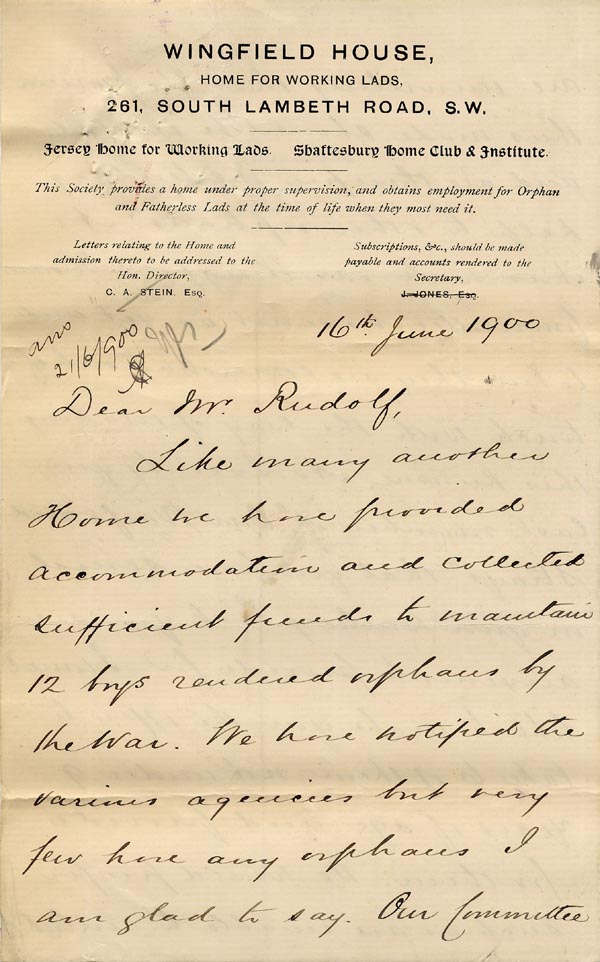 WINGFIELD HOUSE,
HOME FOR WORKING LADS,
261, SOUTH LAMBETH ROAD, S.W.
Jersey Home for Working Lads. Shaftesbury Home Club & Institute.
This Society provides a home under proper supervision, and obtains employment for Orphan
and Fatherless Lads at the time of life when they most need it.
Letters relating to the Home and
admission thereto to be addressed to the
Hon. Director,
C. A. STEIN, Esq.
Subscriptions, &c., should be made
payable and accounts rendered to the
Secretary,
J. JONES, Esq.
16th June 1900
ans
21/6/900
Dear Mr. Rudolf,
Like many another
Home we have provided
accommodation and collected
sufficient funds to maintain
12 boys rendered orphans by
the War. We have notified the
various agencies but very
few have any orphans I
am glad to say. Our Committee